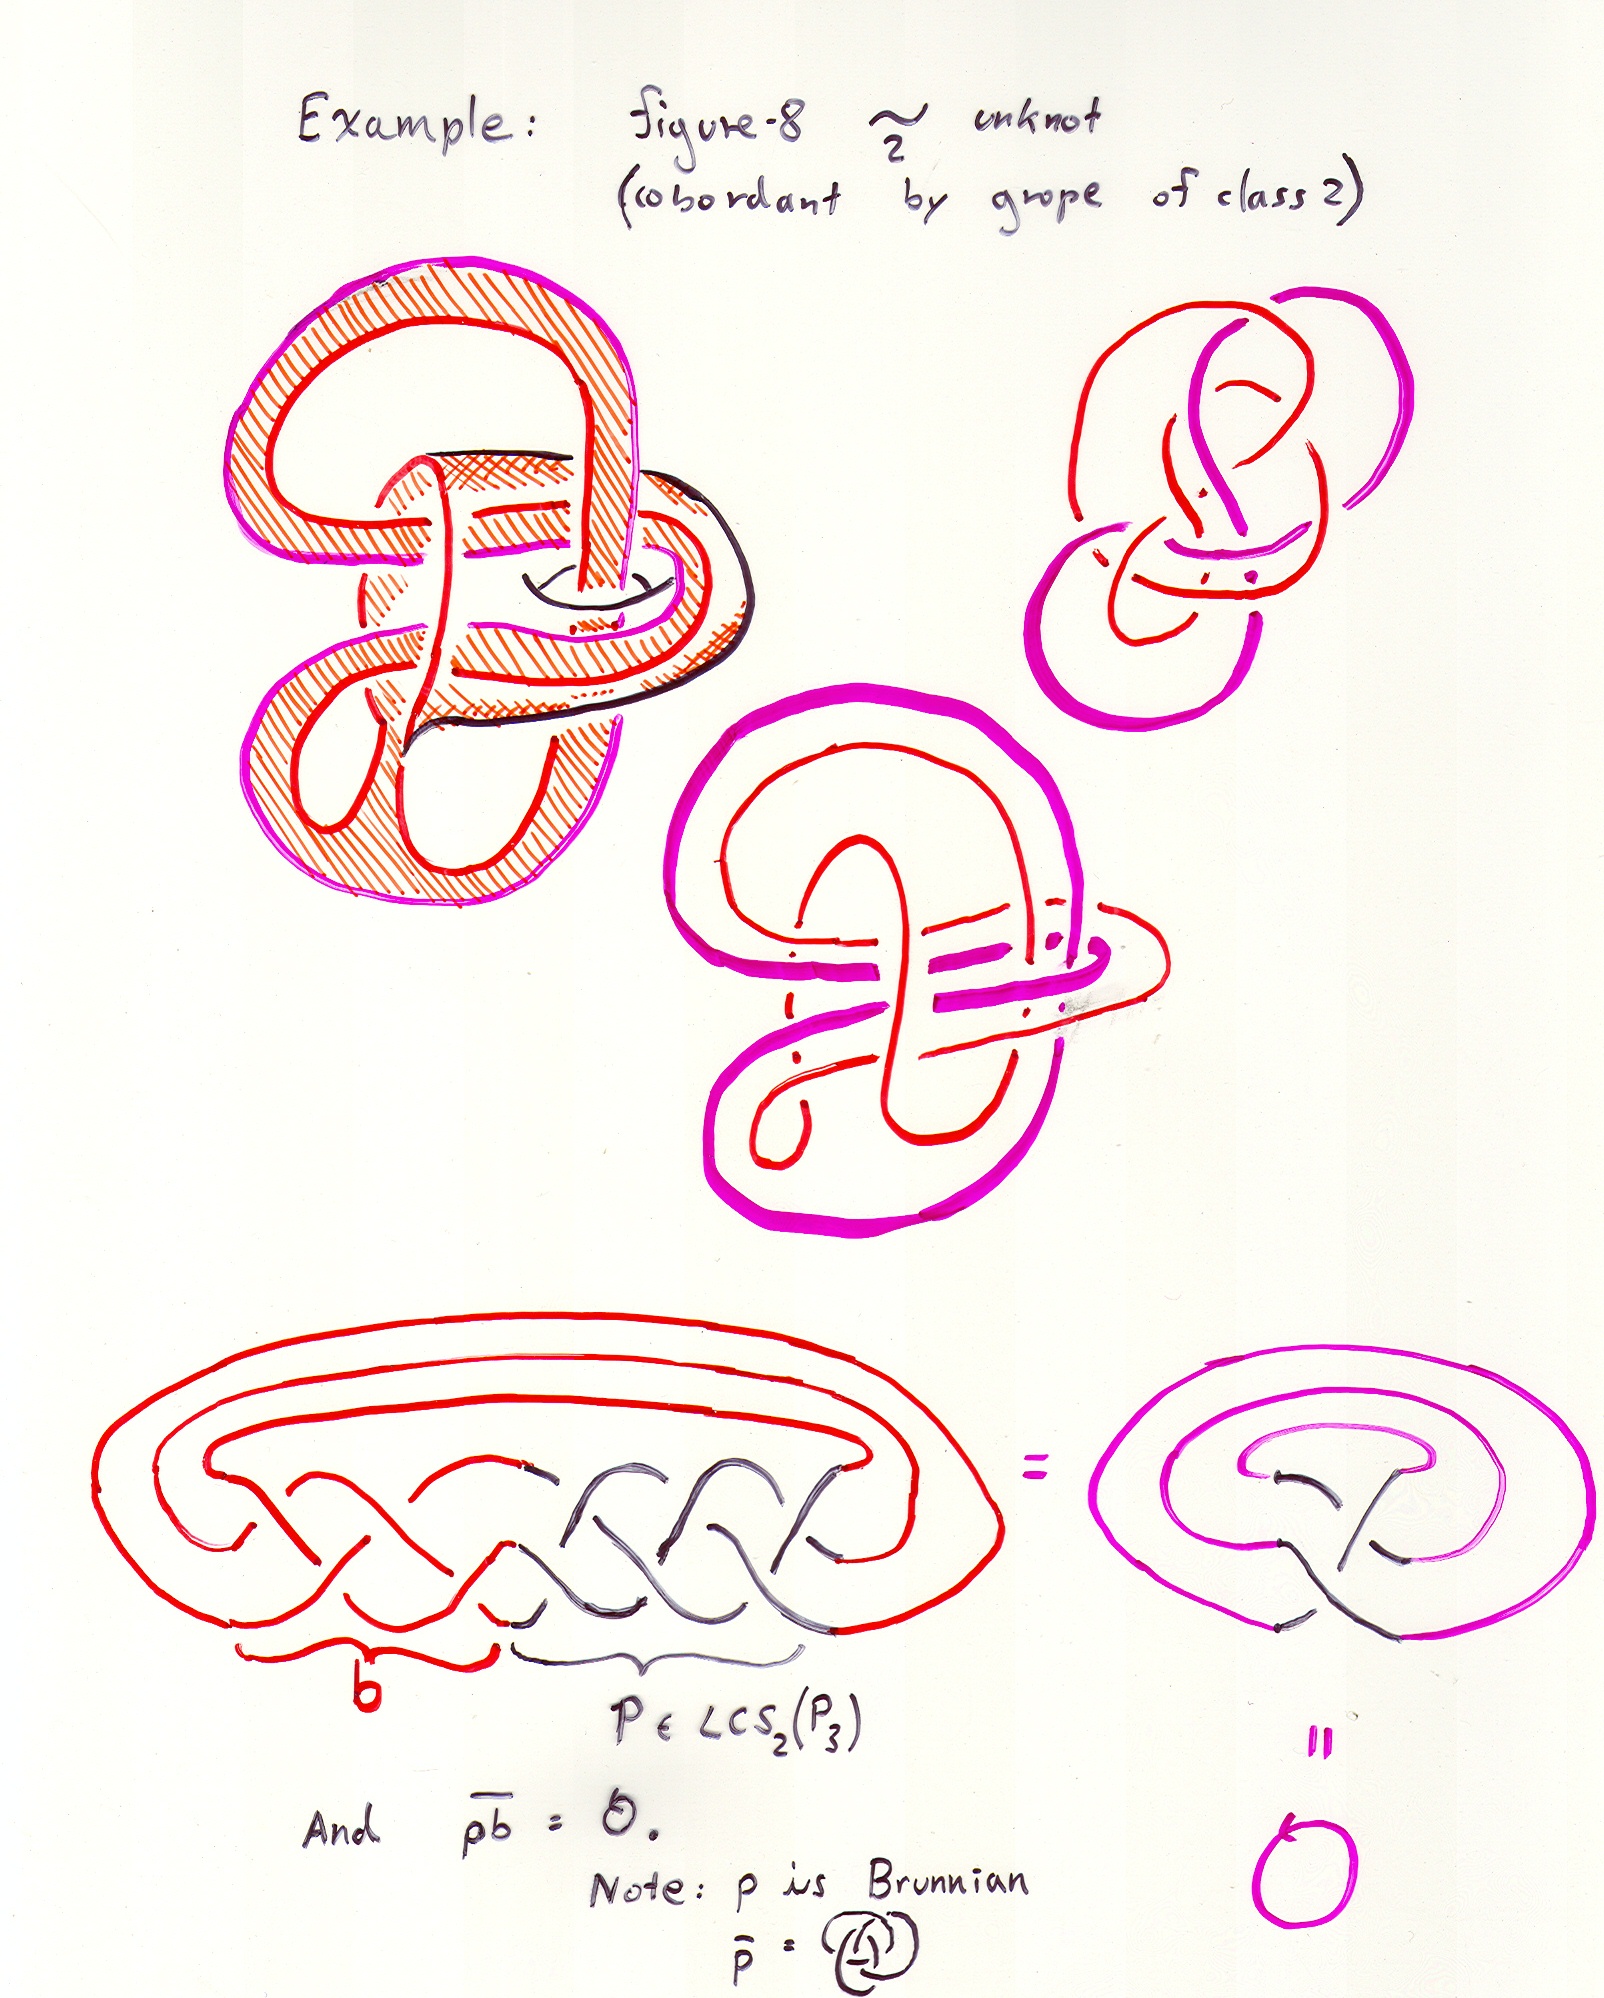 Example: figure-8 ~2 unknot
(cobordant by grope of class 2)
=
b
P ∈ LCS₂(P₃)
=
And p̅b̅ = O.
Note: p is Brunnian
p̅ =